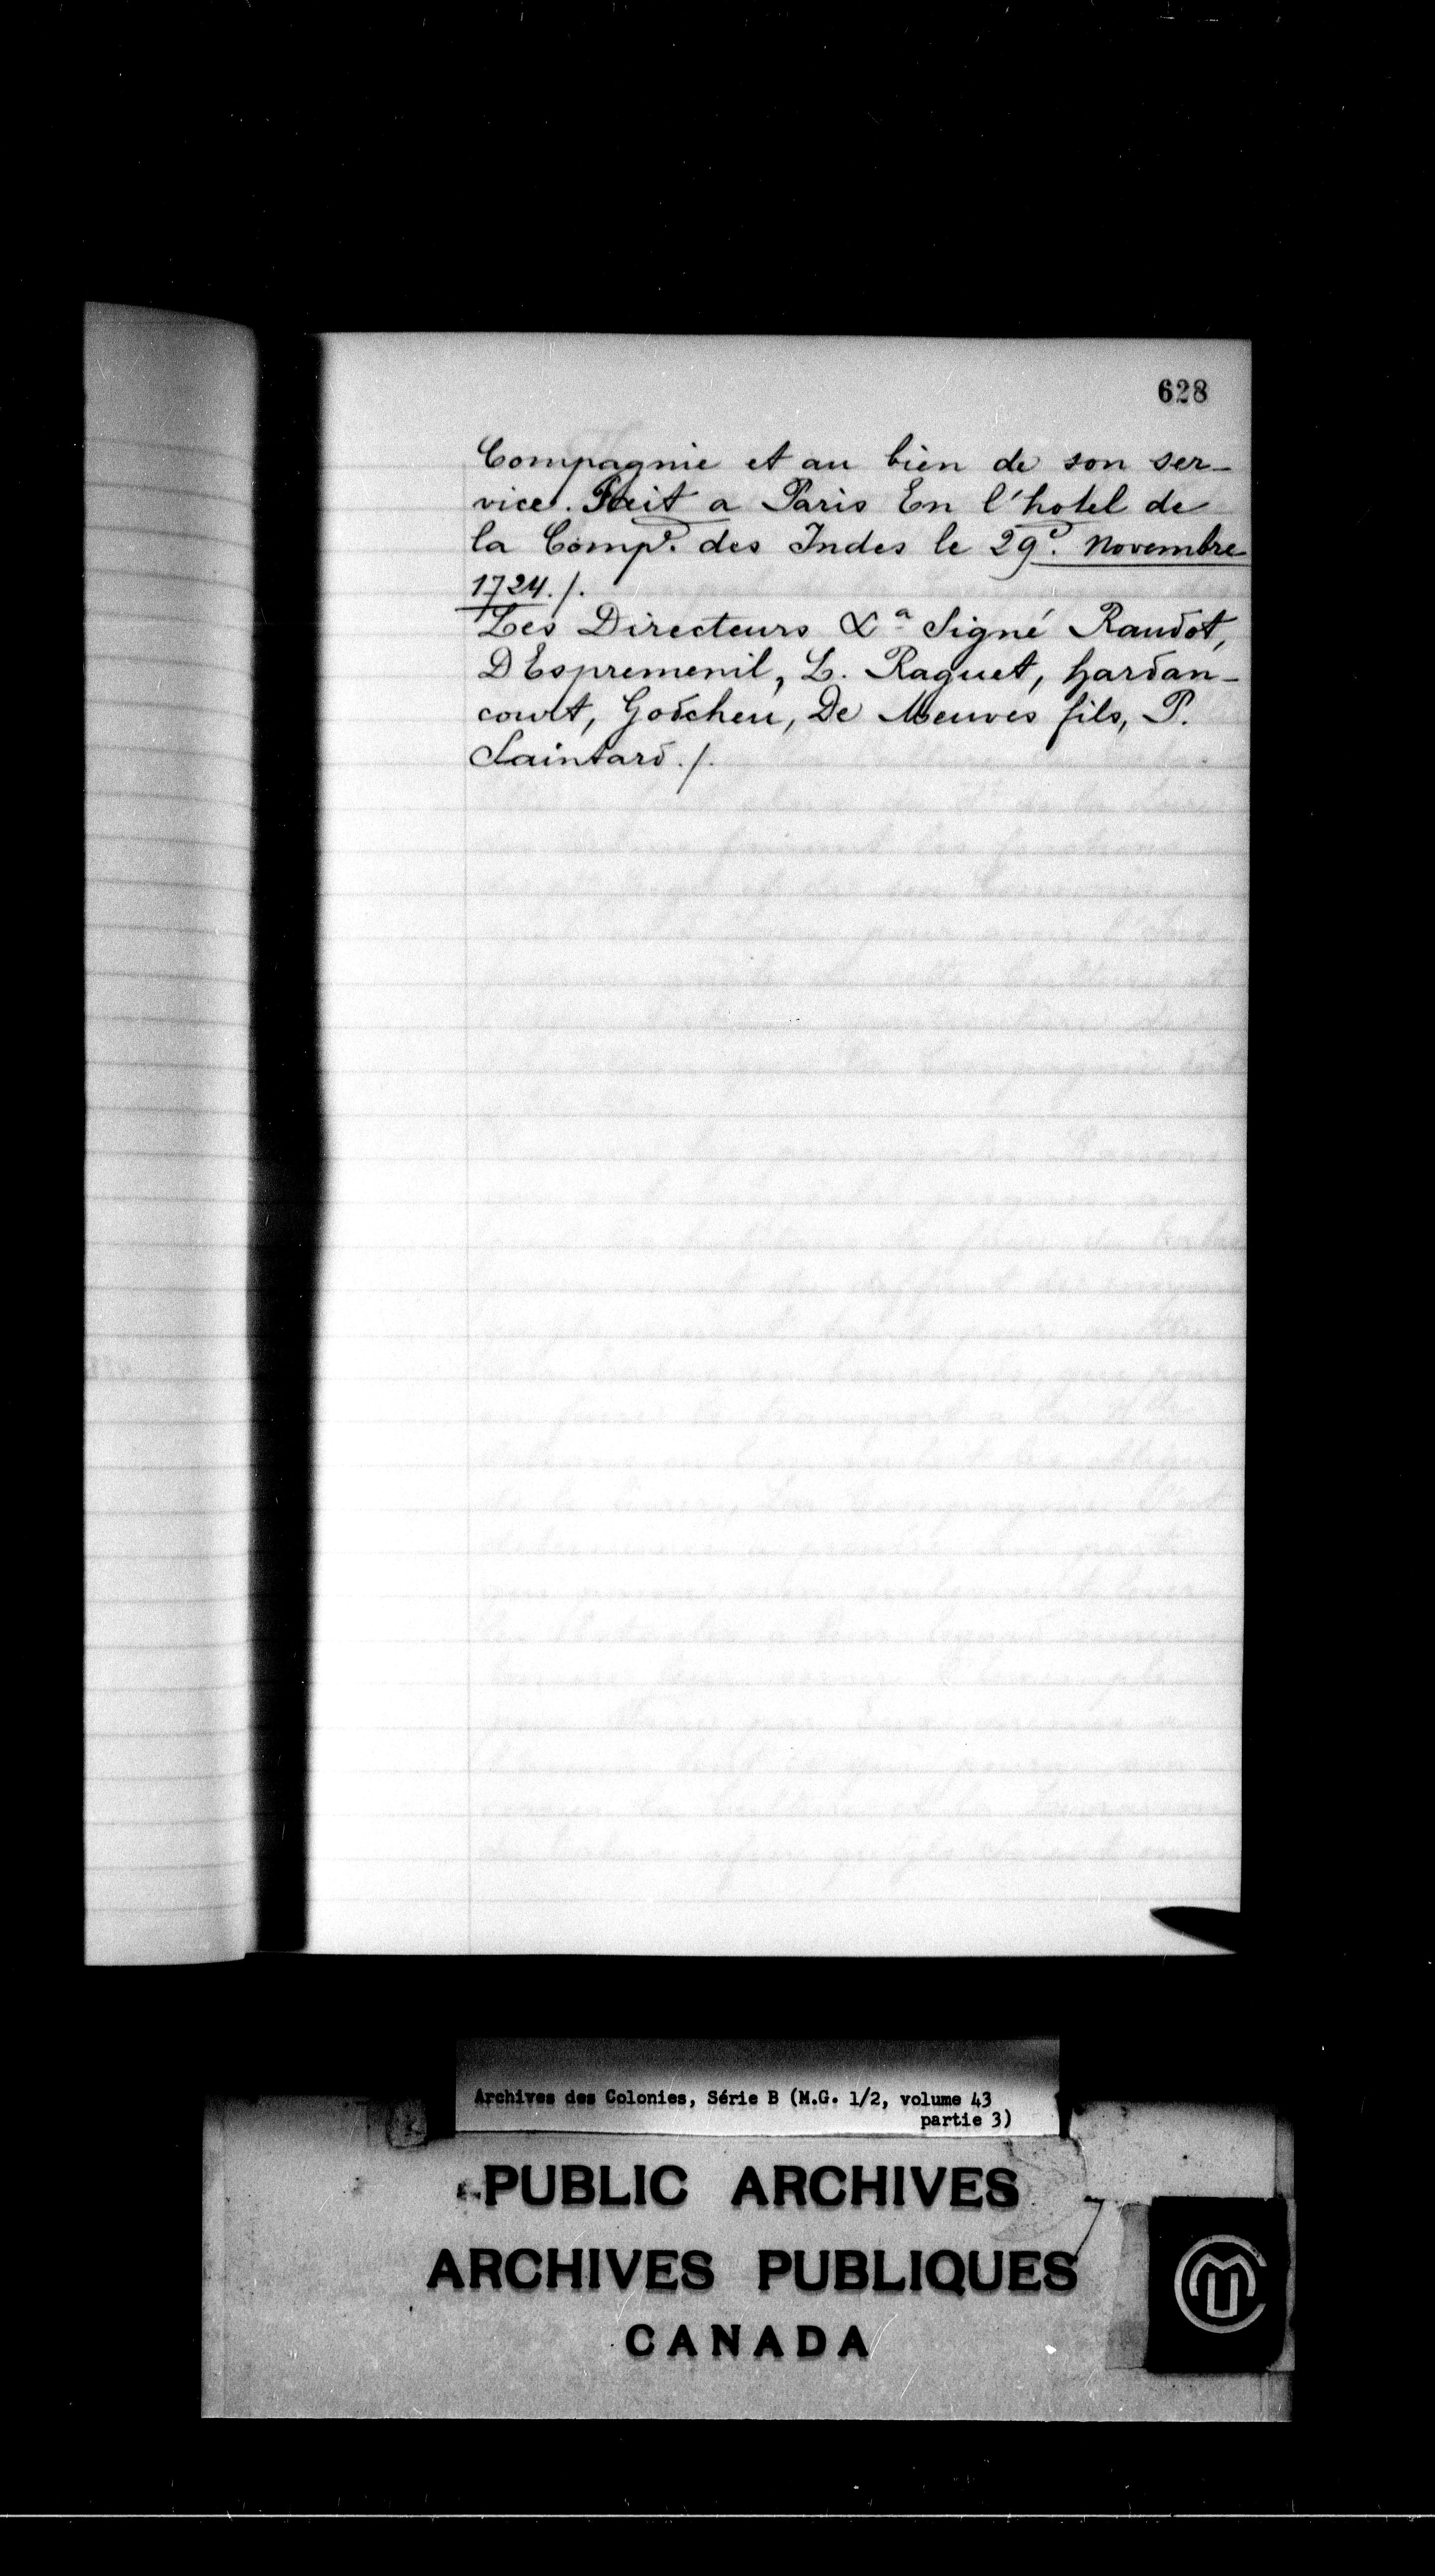 628
Compagnie et au bien de son ser-
vice. Fait a Paris En l'hotel de
la Compe. des Indes le 29e. Novembre
1724./.
Les Directeurs &a Signé Raudot,
DEspremenil, L. Raguet, hardan-
court, Godcheu, De Meuves fils, P.
Saintard./.
Archives des Colonies, Série B (M.G. 1/2, volume 43
partie 3)
PUBLIC ARCHIVES
ARCHIVES PUBLIQUES
CANADA